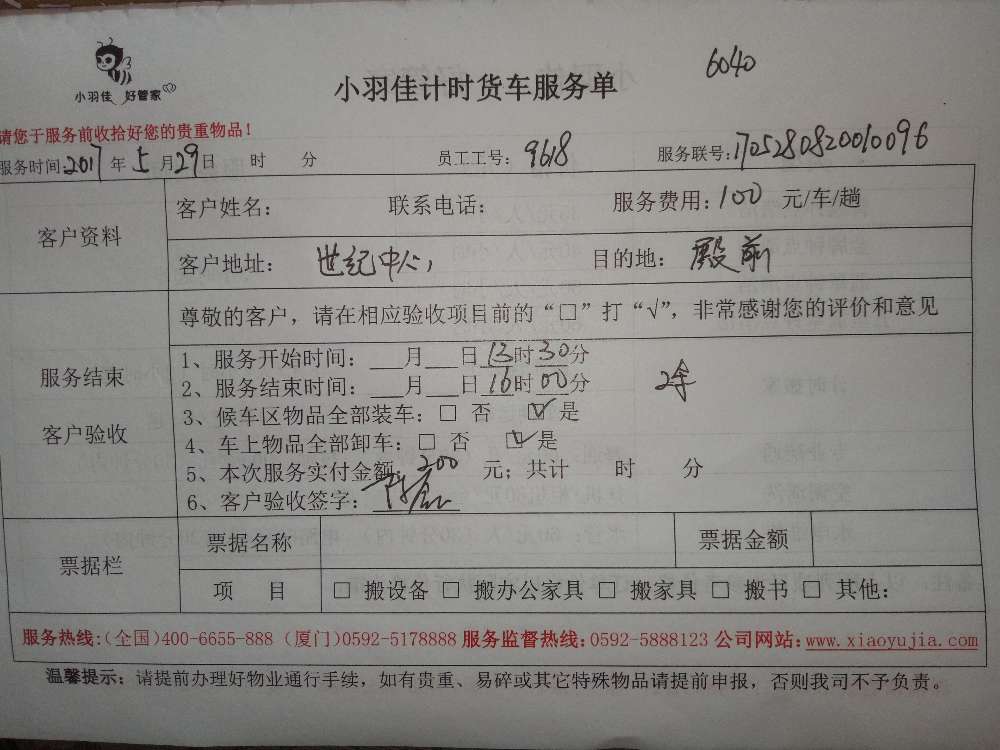 小羽佳 好管家
小羽佳计时货车服务单
6040
请您于服务前收拾好您的贵重物品！
服务时间：2017年5月29日 时 分 员工工号：9618 服务联号：1705280820010096
客户资料
客户姓名： 联系电话： 服务费用：100 元/车/趟
客户地址：世纪中心， 目的地：殿前
服务结束
客户验收
尊敬的客户，请在相应验收项目前的“□”打“√”，非常感谢您的评价和意见
1、服务开始时间：___月___日13时30分
2、服务结束时间：___月___日16时00分
3、候车区物品全部装车：□ 否 ☑ 是
4、车上物品全部卸车：□ 否 ☑ 是
5、本次服务实付金额：200 元；共计 时 分
6、客户验收签字：
票据栏
票据名称 票据金额
项 目 □ 搬设备 □ 搬办公家具 □ 搬家具 □ 搬书 □ 其他：
服务热线：(全国)400-6655-888 (厦门)0592-5178888 服务监督热线：0592-5888123 公司网站：www.xiaoyujia.com
温馨提示：请提前办理好物业通行手续，如有贵重、易碎或其它特殊物品请提前申报，否则我司不予负责。